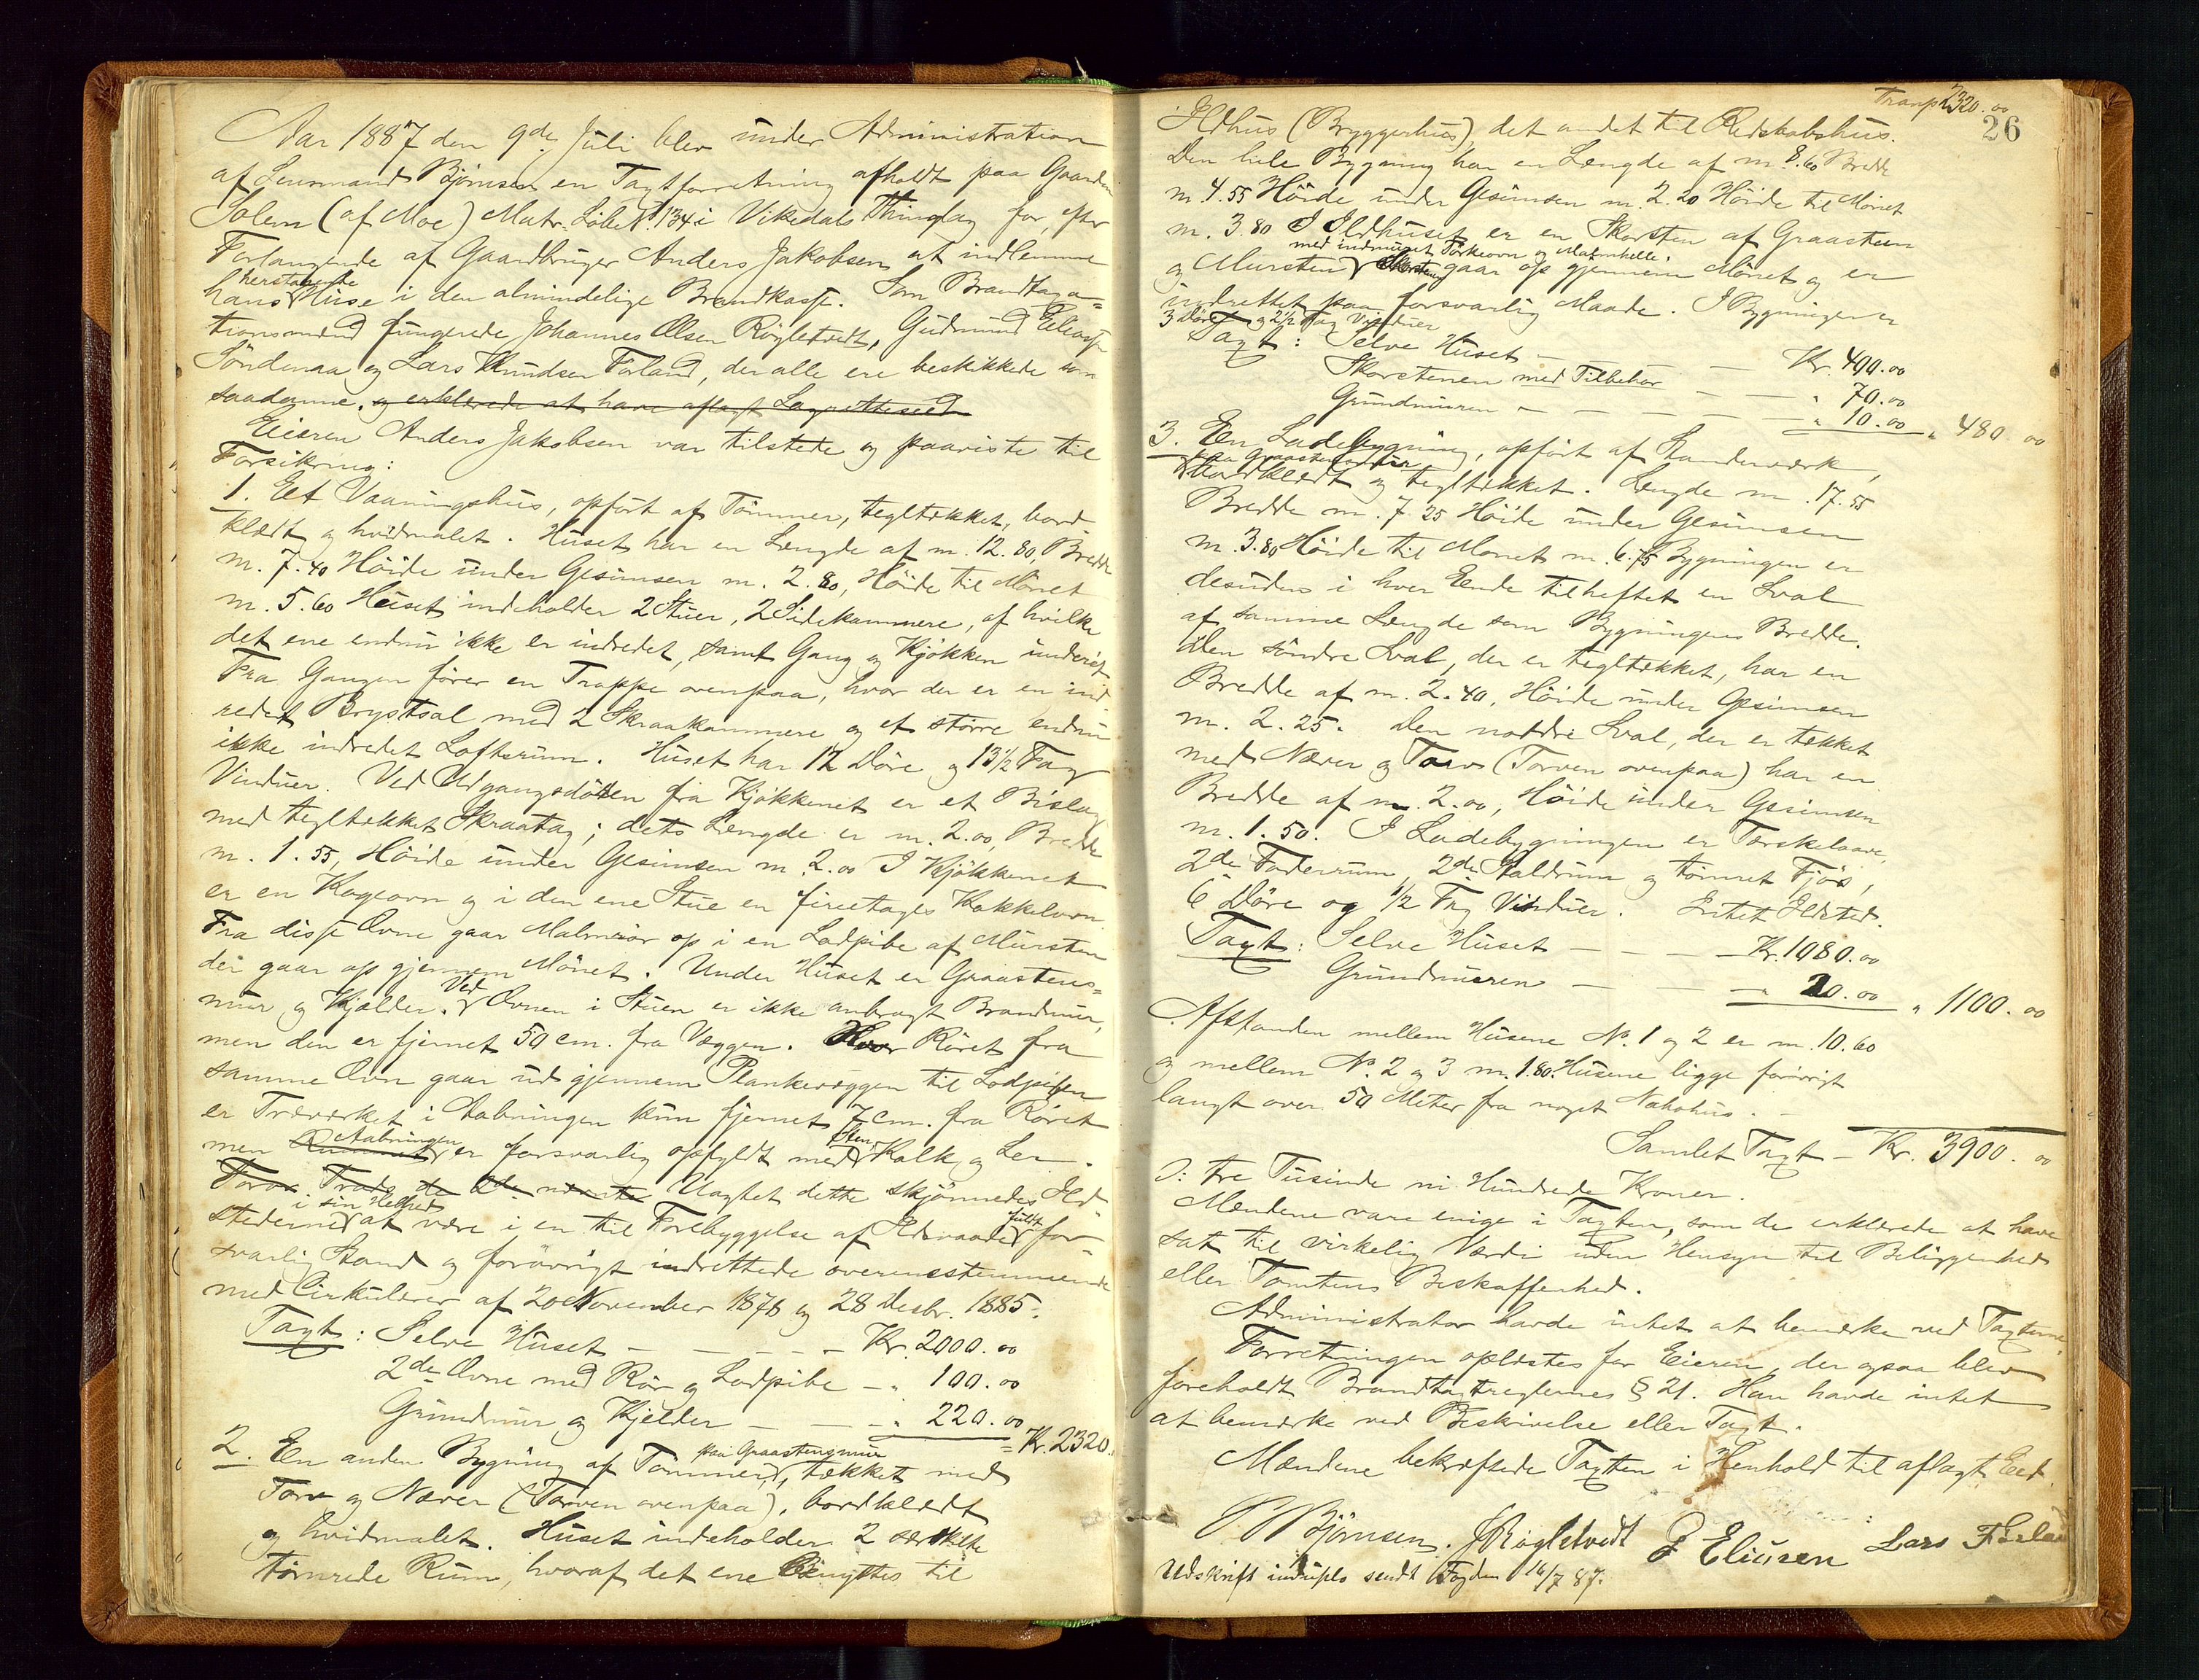 Aar 1887 den 9de Juli blev under Administration
af Lensmand Björnsen en Taxtforretning afholdt paa Gaarden
Solem (af Moe) Matr. Löbe N. 134 i Vikedals Thinglag for, efter
Forlangende af Gaardbruger Anders Jakobsen at indlemme
herstaaende
hans Huse i den almindelige Brandkasse. Som Brandtaxa-
tionsmænd fungerede Johannes Olsen Rögletvedt, Gudmund Eliassen
Söndenaa og Lars Knudsen Förland, der alle ere beskikkede som
saadanne, og erklærede at have aflagt Lagretteseed
Eieren Anders Jakobsen var tilstede og paaviste til
Forsikring:
1. Et Vaaningshus, opfört af Tömmer, tegltækket, bord
klædt og hvidmalet. Huset har en Længde af m. 12.80, Bredde
m. 7.40 Höide under Gesimsen m. 2.80, Höide til Mönet
m. 5.60 Huset indeholder 2 Stuer, 2 Sidekammere, af hvilke
det ene endnu ikke er indredet, samt Gang og Kjökken underet
Fra Gangen förer en Trappe ovenpaa, hvor der er en ind
redet Brystsal med 2 Skraakammere og et större endnu
ikke indredet Loftsrum. Huset har 12 Döre og 13½ Fag
Vinduer. Ved Udgangsdören fra Kjökkenet er et Bislag
med tegltækket Skraatag; dets Længde er m. 2.00, Bredde
m. 1.55, Höide under Gesimsen m. 2.00 I Kjökkenet
er en Kogeovn og i den ene Stue en fireetages Kakkelovn
Fra disse Ovne gaar Malmrör op i en Lodpibe af Mursten
der gaar op gjennem Mönet. Under Huset er Graastens-
mur og Kjælder. Ved Ovnen i Stuen er ikke anbragt Brandmur,
men den er fjernet 50 cm. fra Væggen. Hvor Röret fra
samme Ovn gaar ud gjennem Plankevæggen til Lodpiben
er Træværket i Aabningen kun fjernet 7 cm. fra Röret
men Aabningen er forsvarlig opfyldt med Sten, Kalk og Ler.
Uagtet dette skjönnedes Ild-
i sin Helhed
stederne at være i en til Forebyggelse af Ildsvaade fuldt for-
svarlig Stand og forövrigt indrettede overensstemmende
med Cirkulærer af 20 November 1876 og 28 Desbr. 1885.
Taxt: Selve Huset — Kr. 2000.00
2de Ovne med Rör og Lodpibe — " 100.00
Grundmur og Kjelder — " 220.00 = Kr. 2320.
2. En anden Bygning af Tömmer, paa Graastensmur, tækket med
Torv og Næver (Torven ovenpaa), bordklædt
og hvidmalet. Huset indeholder 2 særskilte
tömrede Rum, hvoraf det ene benyttes til
Transp 2320.00
26
Ildhus (Bryggerhus), det andet til Redskabshus.
Den hele Bygning har en Længde af m. 8.60 Bredde
m. 4.55 Höide under Gesimsen m. 2.20 Höide til Mönet
m. 3.80 I Ildhuset er en Skorsten af Graasten
med indmuret Törkeovn og Malmhelle.
og Mursten Skorsten gaar op gjennem Mönet og er
indrettet paa forsvarlig Maade. I Bygningen er
3 Döre og 2½ Fag Vinduer
Taxt: Selve Huset — Kr. 400.00
Skorstenen med Tilbehör — " 70.00
Grundmuren — " 10.00 " 480.00
3. En Ladebygning, opfört af Standerværk,
paa Graastensmur
bordklædt og tegltækket. Længde m. 17.55
Bredde m. 7.25 Höide under Gesimsen
m. 3.80 Höide til Mönet m. 6.75 Bygningen er
desuden i hver Ende tilheftet en Sval
af samme Længde som Bygningens Bredde.
Den söndre Sval, der er tegltækket, har en
Bredde af m. 2.40, Höide under Gesimsen
m. 2.25. Den nordre Sval, der er tækket
med Næver og Torv (Torven ovenpaa) har en
Bredde af m. 2.00, Höide under Gesimsen
m. 1.50. I Ladebygningen er Tærskelaave,
2de Foderrum, 2de Staldrum og tömret Fjös,
6 Döre og ½ Fag Vinduer. Intet Ildsted.
Taxt: Selve Huset — Kr. 1080.00
Grundmuren — " 20.00 " 1100.00
Afstanden mellem Husene No. 1 og 2 er m. 10.60
og mellem No. 2 og 3 m. 1.80. Husene ligge forövrigt
langt over 50 Meter fra noget Nabohus.
Samlet Taxt — Kr. 3900.00
ɔ: tre Tusinde ni Hundrede Kroner.
Mændene vare enige i Taxten, som de erklærede at have
sat til virkelig Værdi uden Hensyn til Beliggenhed
eller Tomtens Beskaffenhed.
Administrator havde intet at bemærke ved Taxterne.
Forretningen oplæstes for Eieren, der ogsaa blev
foreholdt Brandtaxtreglernes § 21. Han havde intet
at bemærke ved Beskrivelse eller Taxt.
Mændene bekræftede Taxten i Henhold til aflagt Eed.
P Björnsen. J Rögletvedt G Eliasen Lars Förland
Udskrift in duplo sendt Fogden 16/7 87.